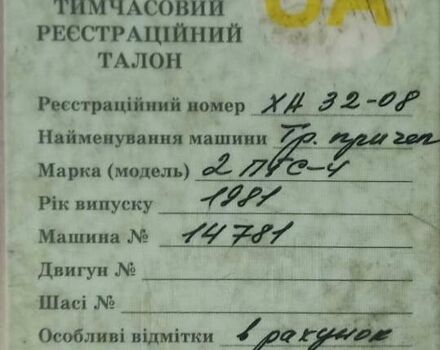 ТИМЧАСОВИЙ
UA
РЕЄСТРАЦІЙНИЙ
ТАЛОН
Реєстраційний номер ХН 32-08
Найменування машини Тр. причеп
Марка (модель) 2 ПТС-4
Рік випуску 1981
Машина № 14781
Двигун №
Шасі №
Особливі відмітки в рахунок